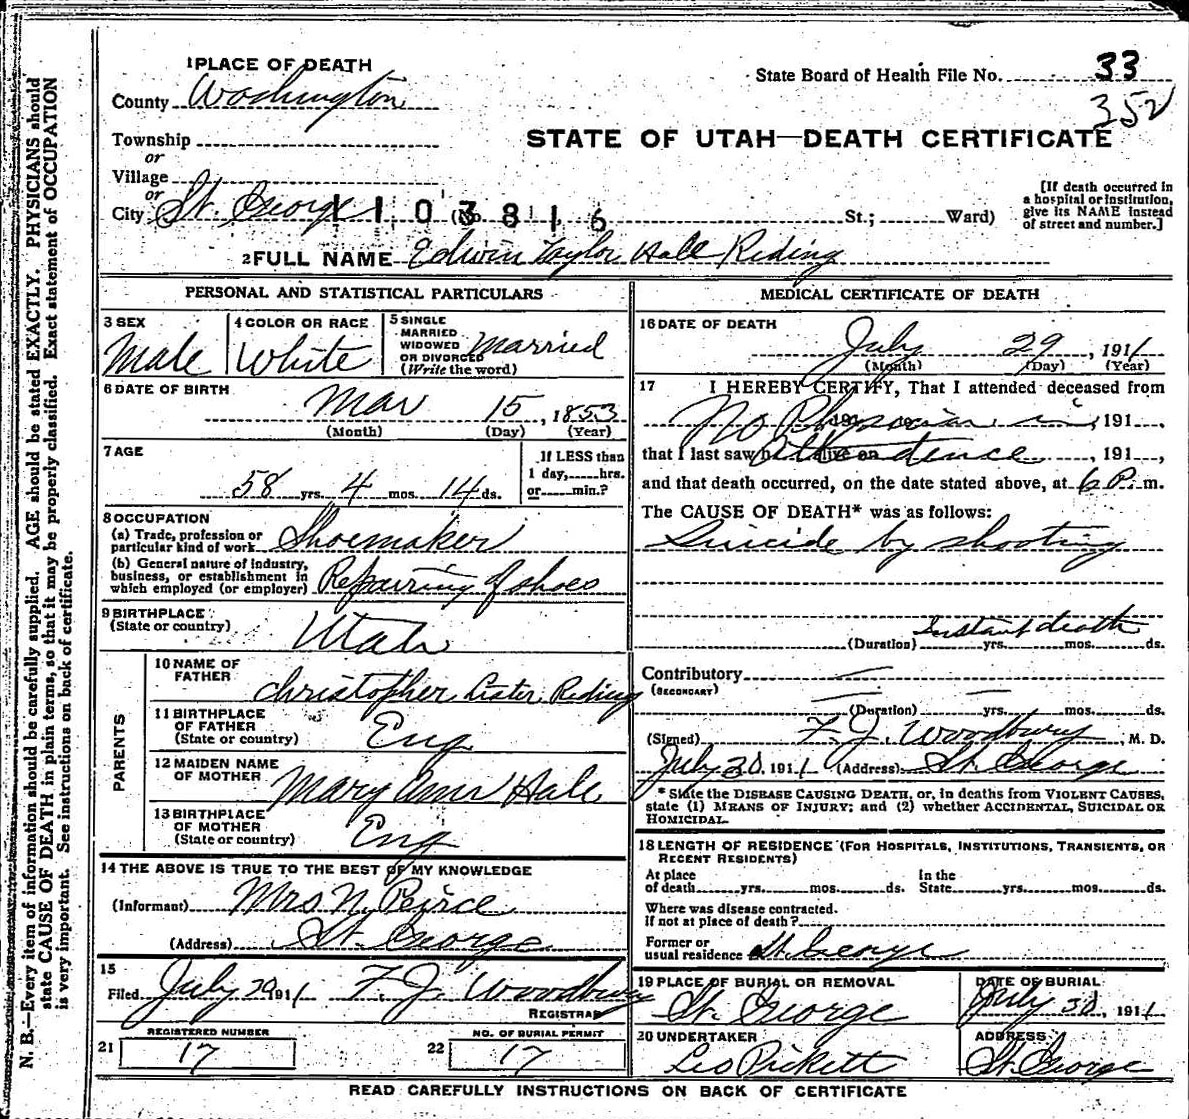 1 PLACE OF DEATH
County Washington
Township
or
Village
or
City St. George (No. St.; Ward)
1103816
State Board of Health File No. 33
352
STATE OF UTAH—DEATH CERTIFICATE
[If death occurred in
a hospital or institution,
give its NAME instead
of street and number.]
2 FULL NAME Edwin Taylor Hale Riding
PERSONAL AND STATISTICAL PARTICULARS
3 SEX
Male
4 COLOR OR RACE
White
5 SINGLE
MARRIED
WIDOWED
OR DIVORCED
(Write the word)
Married
6 DATE OF BIRTH
Mar 15, 1853
(Month) (Day) (Year)
7 AGE
58 yrs. 4 mos. 14 ds.
If LESS than
1 day, hrs.
or min.?
8 OCCUPATION
(a) Trade, profession or
particular kind of work Shoemaker
(b) General nature of industry,
business, or establishment in
which employed (or employer) Repairing of shoes
9 BIRTHPLACE
(State or country) Utah
PARENTS
10 NAME OF
FATHER Christopher Lister Riding
11 BIRTHPLACE
OF FATHER
(State or country) Eng
12 MAIDEN NAME
OF MOTHER Mary Ann Hale
13 BIRTHPLACE
OF MOTHER
(State or country) Eng
14 THE ABOVE IS TRUE TO THE BEST OF MY KNOWLEDGE
(Informant) Mrs N. Peirce
(Address) St. George
15
Filed July 29 1911 F. J. Woodbury
REGISTRAR
REGISTERED NUMBER
21 17
NO. OF BURIAL PERMIT
22 17
MEDICAL CERTIFICATE OF DEATH
16 DATE OF DEATH
July 29, 1911
(Month) (Day) (Year)
17 I HEREBY CERTIFY, That I attended deceased from
No Physician in , 191 ,
that I last saw h alive on , 191 ,
Attendence
and that death occurred, on the date stated above, at 6 P. m.
The CAUSE OF DEATH* was as follows:
Suicide by shooting
Instant death
(Duration) yrs. mos. ds.
Contributory —
(SECONDARY)
— —
(Duration) yrs. mos. ds.
(Signed) F. J. Woodbury, M. D.
July 30, 1911 (Address) St. George
* State the DISEASE CAUSING DEATH, or, in deaths from VIOLENT CAUSES,
state (1) MEANS OF INJURY; and (2) whether ACCIDENTAL, SUICIDAL OR
HOMICIDAL.
18 LENGTH OF RESIDENCE (FOR HOSPITALS, INSTITUTIONS, TRANSIENTS, OR
RECENT RESIDENTS)
At place
of death yrs. mos. ds.
In the
State yrs. mos. ds.
Where was disease contracted.
If not at place of death?
Former or
usual residence St. George
19 PLACE OF BURIAL OR REMOVAL
St. George
DATE OF BURIAL
July 30, 1911
20 UNDERTAKER
Leo Pickett
ADDRESS
St. George
READ CAREFULLY INSTRUCTIONS ON BACK OF CERTIFICATE
N. B.—Every item of information should be carefully supplied. AGE should be stated EXACTLY. PHYSICIANS should
state CAUSE OF DEATH in plain terms, so that it may be properly classified. Exact statement of OCCUPATION
is very important. See instructions on back of certificate.